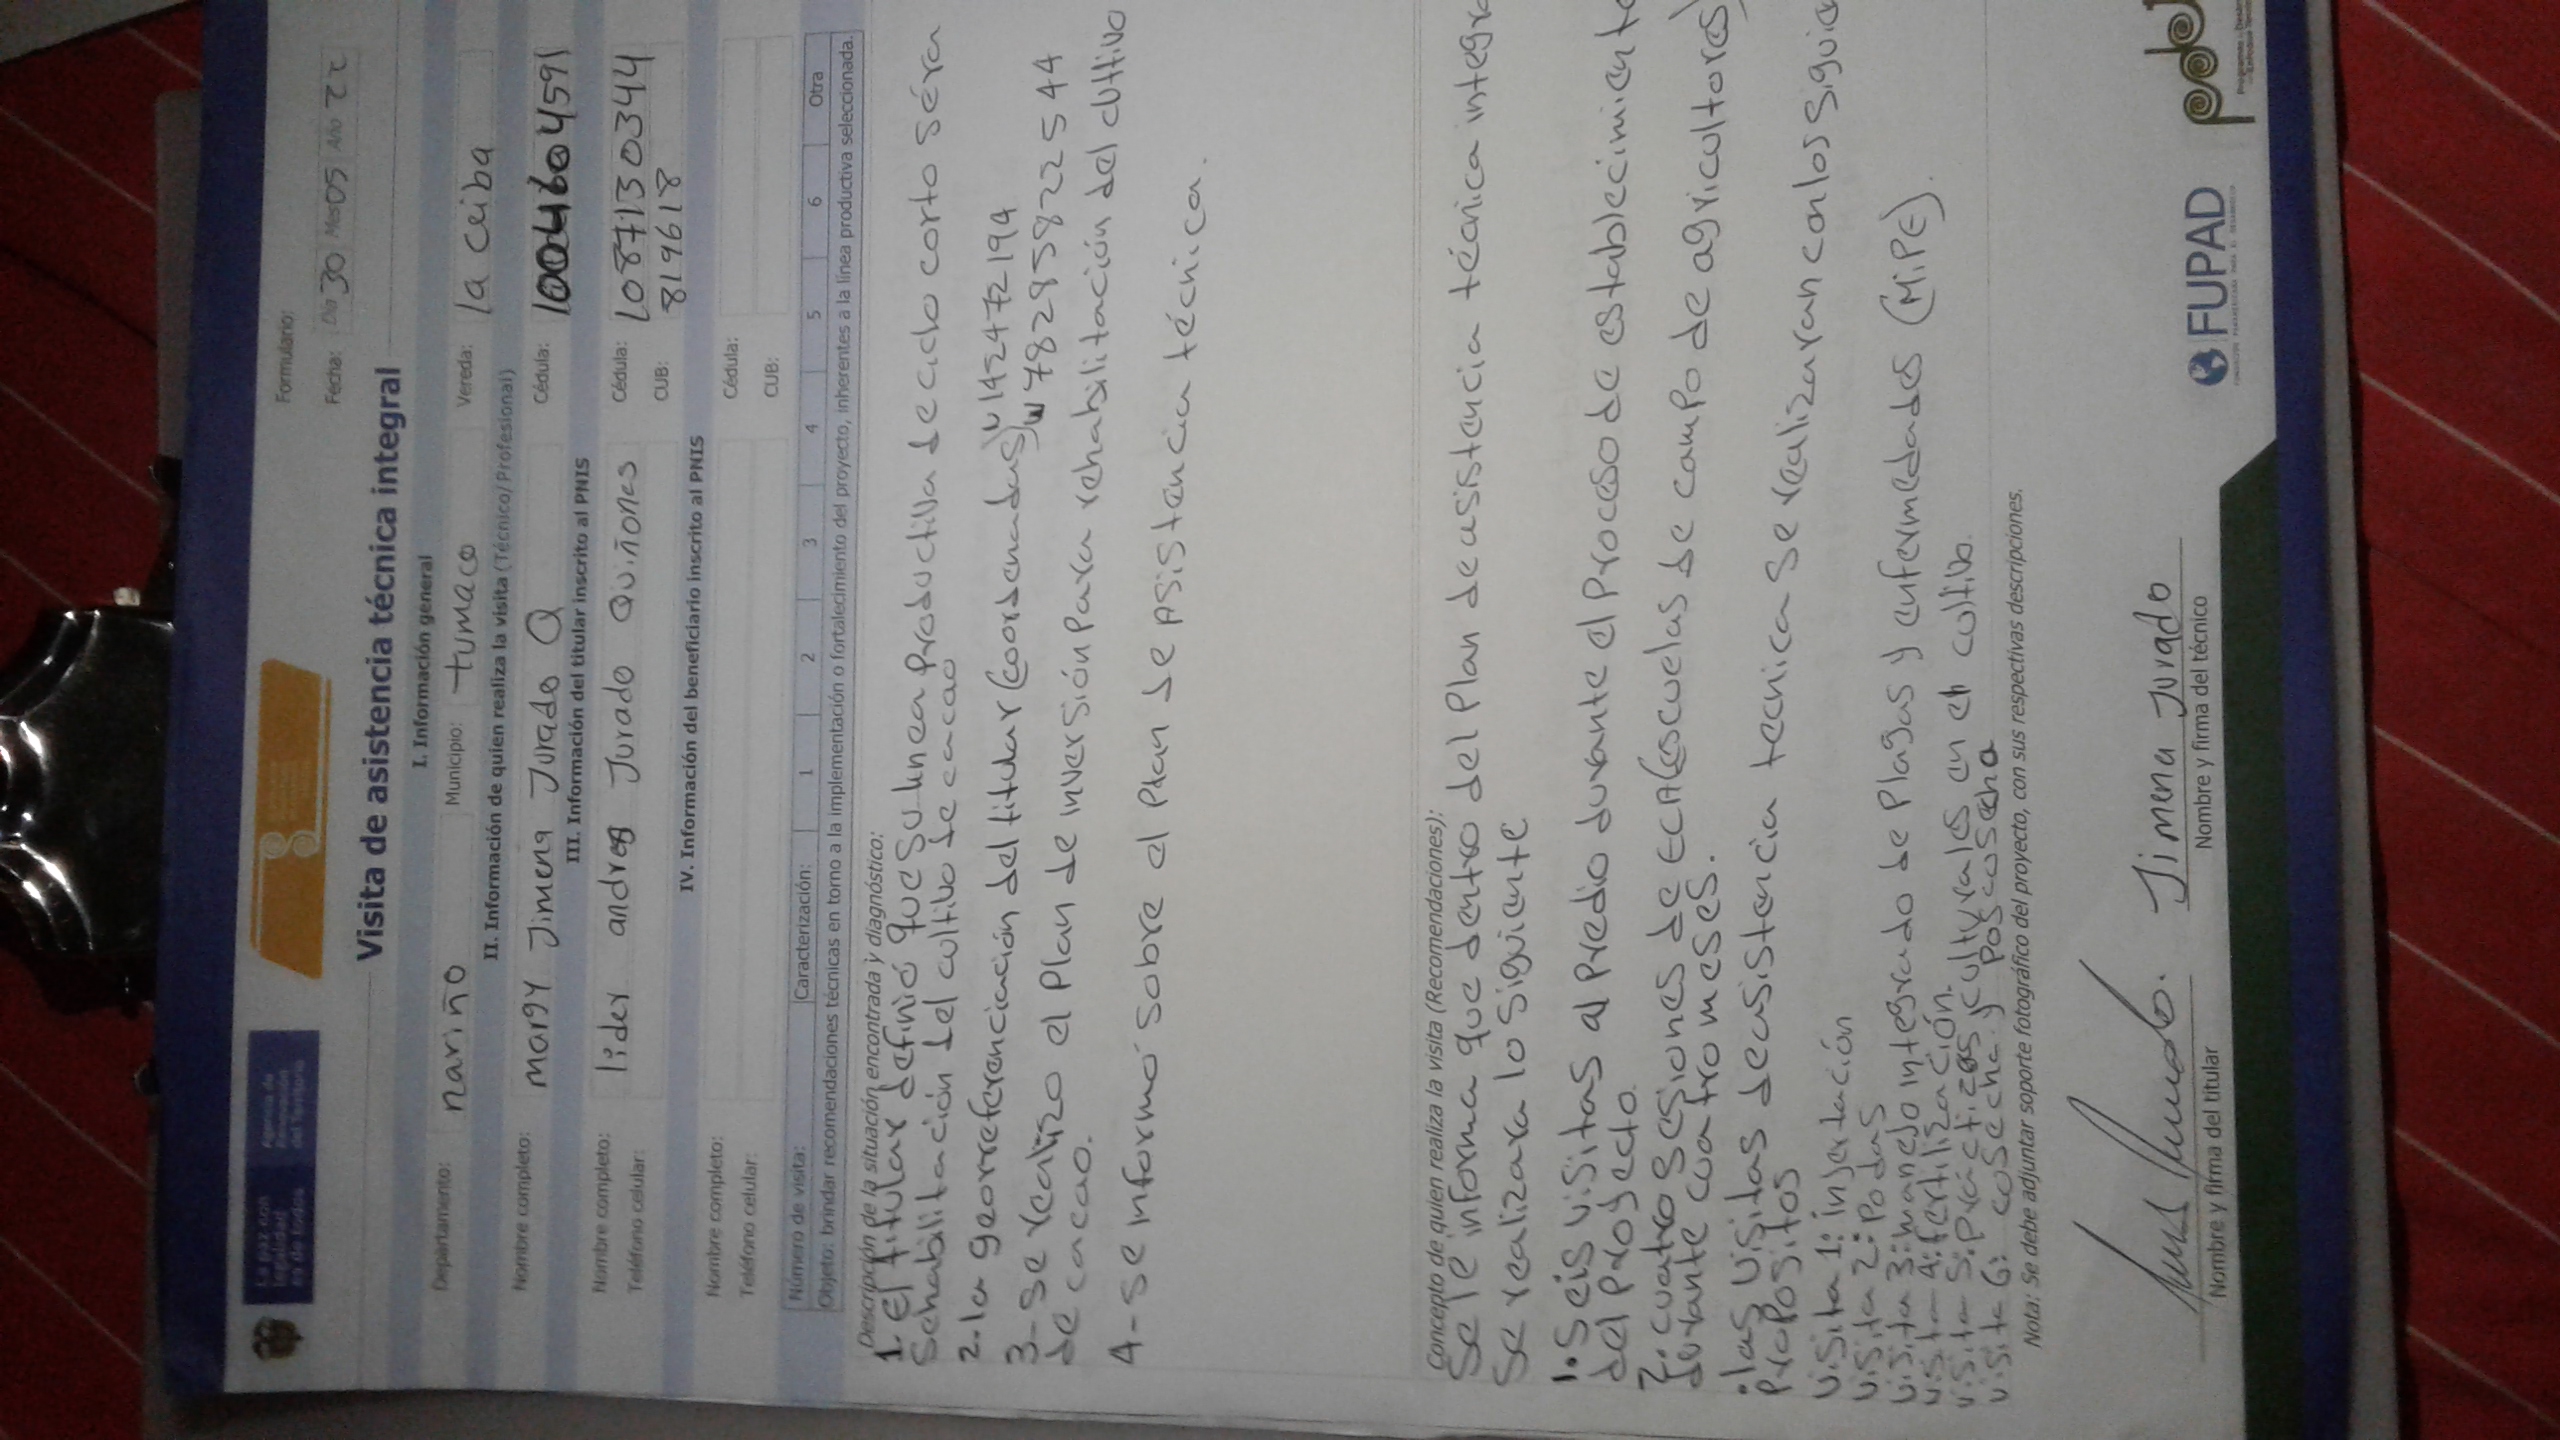 La paz con legalidad es de todos
Agencia de Renovación del Territorio
Formulario:
Fecha: Día 30 Mes 05 Año 22
Visita de asistencia técnica integral
I. Información general
Departamento: nariño Municipio: tumaco Vereda: la ceiba
II. Información de quien realiza la visita (Técnico/Profesional)
Nombre completo: margy Jimena Jurado Q Cédula: 1004604591
III. Información del titular inscrito al PNIS
Nombre completo: lider andres Jurado Quiñones Cédula: 1087130344
Teléfono celular: CUB: 819618
IV. Información del beneficiario inscrito al PNIS
Nombre completo: Cédula:
Teléfono celular: CUB:
Número de visita: Caracterización: 1 2 3 4 5 6 Otra
Objeto: brindar recomendaciones técnicas en torno a la implementación o fortalecimiento del proyecto, inherentes a la línea productiva seleccionada.
Descripción de la situación encontrada y diagnóstico:
1. El titular definió que su linea productilla de ciclo corto séra
Sehabilitación del cultivo de cacao
2. la georreferenciación del titular (coordenadas) N 142472194
W 782985822544
3- se realizo el plan de inversión para rehabilitación del cultivo
de cacao.
4- se informó sobre el plan de Asistencia técnica.
Concepto de quien realiza la visita (Recomendaciones):
se le informa que dentro del plan de asistencia técnica integra
se realizara lo siguiente
1. Seis visitas al predio durante el proceso de establecimiento
del proyecto.
2. cuatro sesiones de ECA (escuelas de campo de agricultores)
durante cuatro meses.
. las visitas de asistencia tecnica se realizaran con los siguie
propositos
visita 1: injertación
visita 2: Podas
visita 3: manejo integrado de plagas y enfermedades (MiPE).
visita 4: fertilización.
visita 5: prácticas culturales en el cultivo.
visita 6: cosecha y poscosecha
Nota: Se debe adjuntar soporte fotográfico del proyecto, con sus respectivas descripciones.
Jimena Jurado
Nombre y firma del titular Nombre y firma del técnico
FUPAD